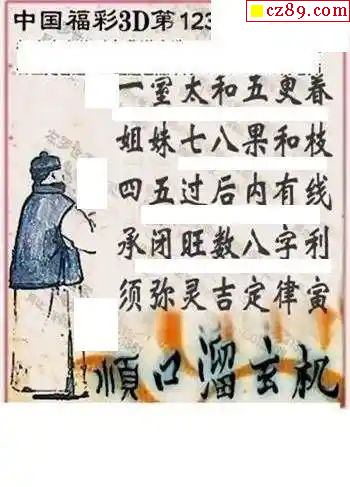 cz89.com
中国福彩3D第123
一室太和五更春
姐妹七八果和枝
四五过后内有线
承闭旺数八字利
须弥灵吉定律寅
順口溜玄机